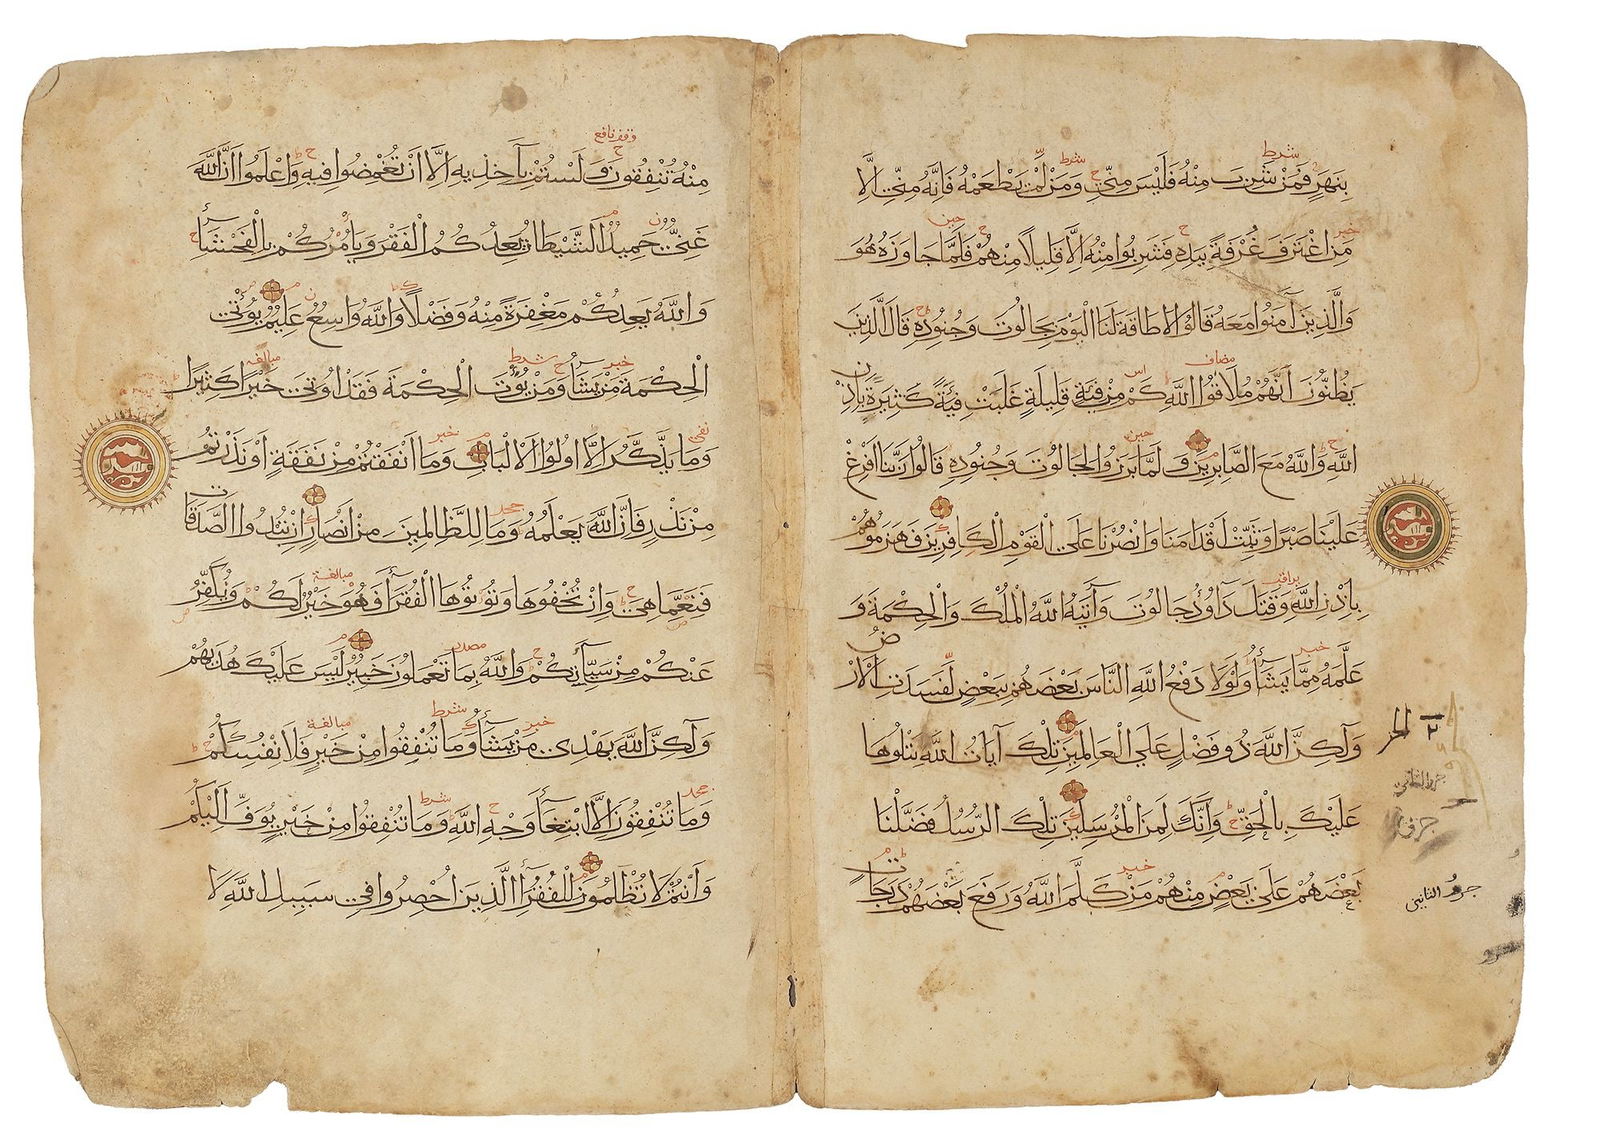 بِنَهَرٍ فَمَنْ شَرِبَ مِنْهُ فَلَيْسَ مِنِّي وَمَنْ لَمْ يَطْعَمْهُ فَإِنَّهُ مِنِّي إِلَّا
مَنِ اغْتَرَفَ غُرْفَةً بِيَدِهِ فَشَرِبُوا مِنْهُ إِلَّا قَلِيلًا مِنْهُمْ فَلَمَّا جَاوَزَهُ هُوَ
وَالَّذِينَ آمَنُوا مَعَهُ قَالُوا لَا طَاقَةَ لَنَا الْيَوْمَ بِجَالُوتَ وَجُنُودِهِ قَالَ الَّذِينَ
يَظُنُّونَ أَنَّهُمْ مُلَاقُوا اللَّهِ كَمْ مِنْ فِئَةٍ قَلِيلَةٍ غَلَبَتْ فِئَةً كَثِيرَةً بِإِذْنِ
اللَّهِ وَاللَّهُ مَعَ الصَّابِرِينَ وَلَمَّا بَرَزُوا لِجَالُوتَ وَجُنُودِهِ قَالُوا رَبَّنَا أَفْرِغْ
عَلَيْنَا صَبْرًا وَثَبِّتْ أَقْدَامَنَا وَانْصُرْنَا عَلَى الْقَوْمِ الْكَافِرِينَ فَهَزَمُوهُمْ
بِإِذْنِ اللَّهِ وَقَتَلَ دَاوُدُ جَالُوتَ وَآتَيهُ اللَّهُ الْمُلْكَ وَالْحِكْمَةَ وَ
عَلَّمَهُ مِمَّا يَشَاءُ وَلَوْلَا دَفْعُ اللَّهِ النَّاسَ بَعْضَهُمْ بِبَعْضٍ لَفَسَدَتِ الْأَرْضُ
وَلَكِنَّ اللَّهَ ذُو فَضْلٍ عَلَى الْعَالَمِينَ تِلْكَ آيَاتُ اللَّهِ نَتْلُوهَا
عَلَيْكَ بِالْحَقِّ وَإِنَّكَ لَمِنَ الْمُرْسَلِينَ تِلْكَ الرُّسُلُ فَضَّلْنَا
بَعْضَهُمْ عَلَى بَعْضٍ مِنْهُمْ مَنْ كَلَّمَ اللَّهُ وَرَفَعَ بَعْضَهُمْ دَرَجَاتٍ
مِنْهُ تُنْفِقُونَ وَلَسْتُمْ بِآخِذِيهِ إِلَّا أَنْ تُغْمِضُوا فِيهِ وَاعْلَمُوا أَنَّ اللَّهَ
غَنِيٌّ حَمِيدٌ الشَّيْطَانُ يَعِدُكُمُ الْفَقْرَ وَيَأْمُرُكُمْ بِالْفَحْشَاءِ
وَاللَّهُ يَعِدُكُمْ مَغْفِرَةً مِنْهُ وَفَضْلًا وَاللَّهُ وَاسِعٌ عَلِيمٌ يُؤْتِي
الْحِكْمَةَ مَنْ يَشَاءُ وَمَنْ يُؤْتَ الْحِكْمَةَ فَقَدْ أُوتِيَ خَيْرًا كَثِيرًا
وَمَا يَذَّكَّرُ إِلَّا أُولُوا الْأَلْبَابِ وَمَا أَنْفَقْتُمْ مِنْ نَفَقَةٍ أَوْ نَذَرْتُمْ
مِنْ نَذْرٍ فَإِنَّ اللَّهَ يَعْلَمُهُ وَمَا لِلظَّالِمِينَ مِنْ أَنْصَارٍ إِنْ تُبْدُوا الصَّدَقَاتِ
فَنِعِمَّا هِيَ وَإِنْ تُخْفُوهَا وَتُؤْتُوهَا الْفُقَرَاءَ فَهُوَ خَيْرٌ لَكُمْ وَيُكَفِّرُ
عَنْكُمْ مِنْ سَيِّئَاتِكُمْ وَاللَّهُ بِمَا تَعْمَلُونَ خَبِيرٌ لَيْسَ عَلَيْكَ هُدَيهُمْ
وَلَكِنَّ اللَّهَ يَهْدِي مَنْ يَشَاءُ وَمَا تُنْفِقُوا مِنْ خَيْرٍ فَلِأَنْفُسِكُمْ
وَمَا تُنْفِقُونَ إِلَّا ابْتِغَاءَ وَجْهِ اللَّهِ وَمَا تُنْفِقُوا مِنْ خَيْرٍ يُوَفَّ إِلَيْكُمْ
وَأَنْتُمْ لَا تُظْلَمُونَ لِلْفُقَرَاءِ الَّذِينَ أُحْصِرُوا فِي سَبِيلِ اللَّهِ لَا